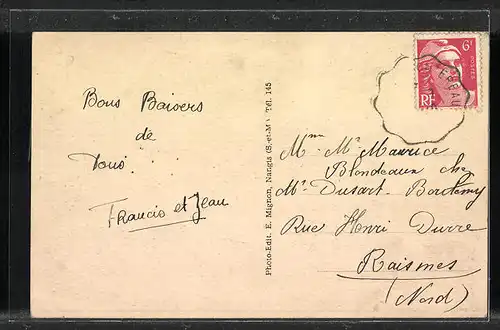 Bons Baisers
de
Tous.
Francis et Jean
Photo-Edit. E. Mignon, Nangis (S.-et-M.) Tél. 145
6F
POSTES
RF
Mme Mr Maurice
Blondeaux chez
Mr Dusart-
Rue Henri Durre
Raismes
(Nord)